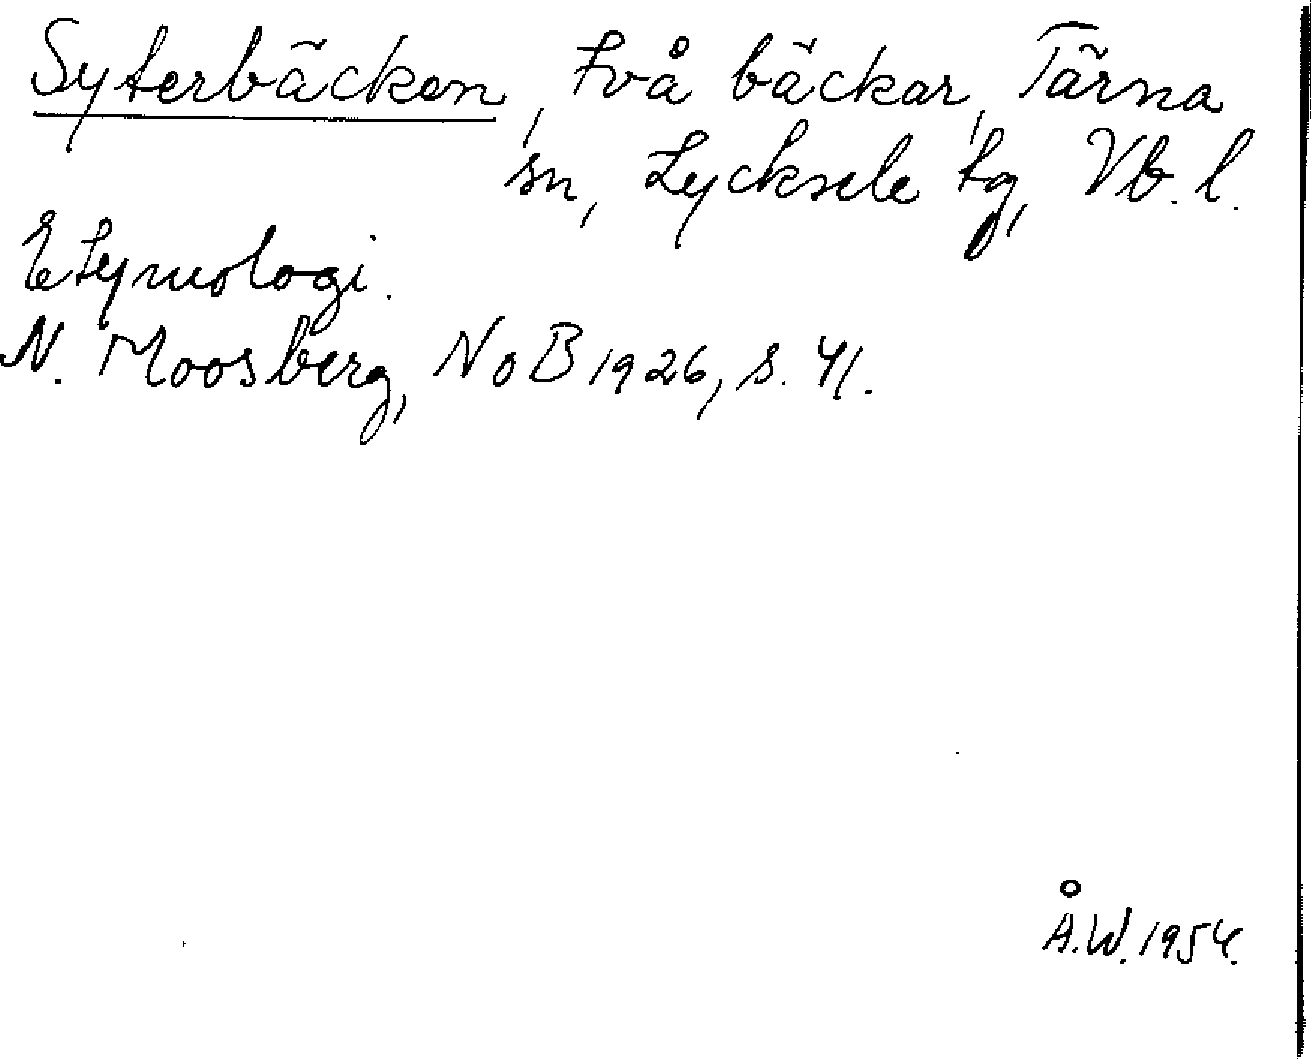 Syterbäcken, två bäckar, Tärna
sn, Lycksele tg, Vb. l.
Etymologi.
N. Moosberg, NoB 1926, s. 41.
Å.W. 1954.